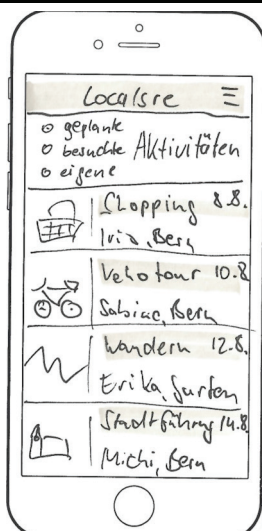 Localsre
geplante
besuchte Aktivitäten
eigene
Shopping 8.8.
Iris, Bern
Velotour 10.8
Sabine, Bern
Wandern 12.8.
Erika, Sursten
Stadtführung 14.8.
Michi, Bern